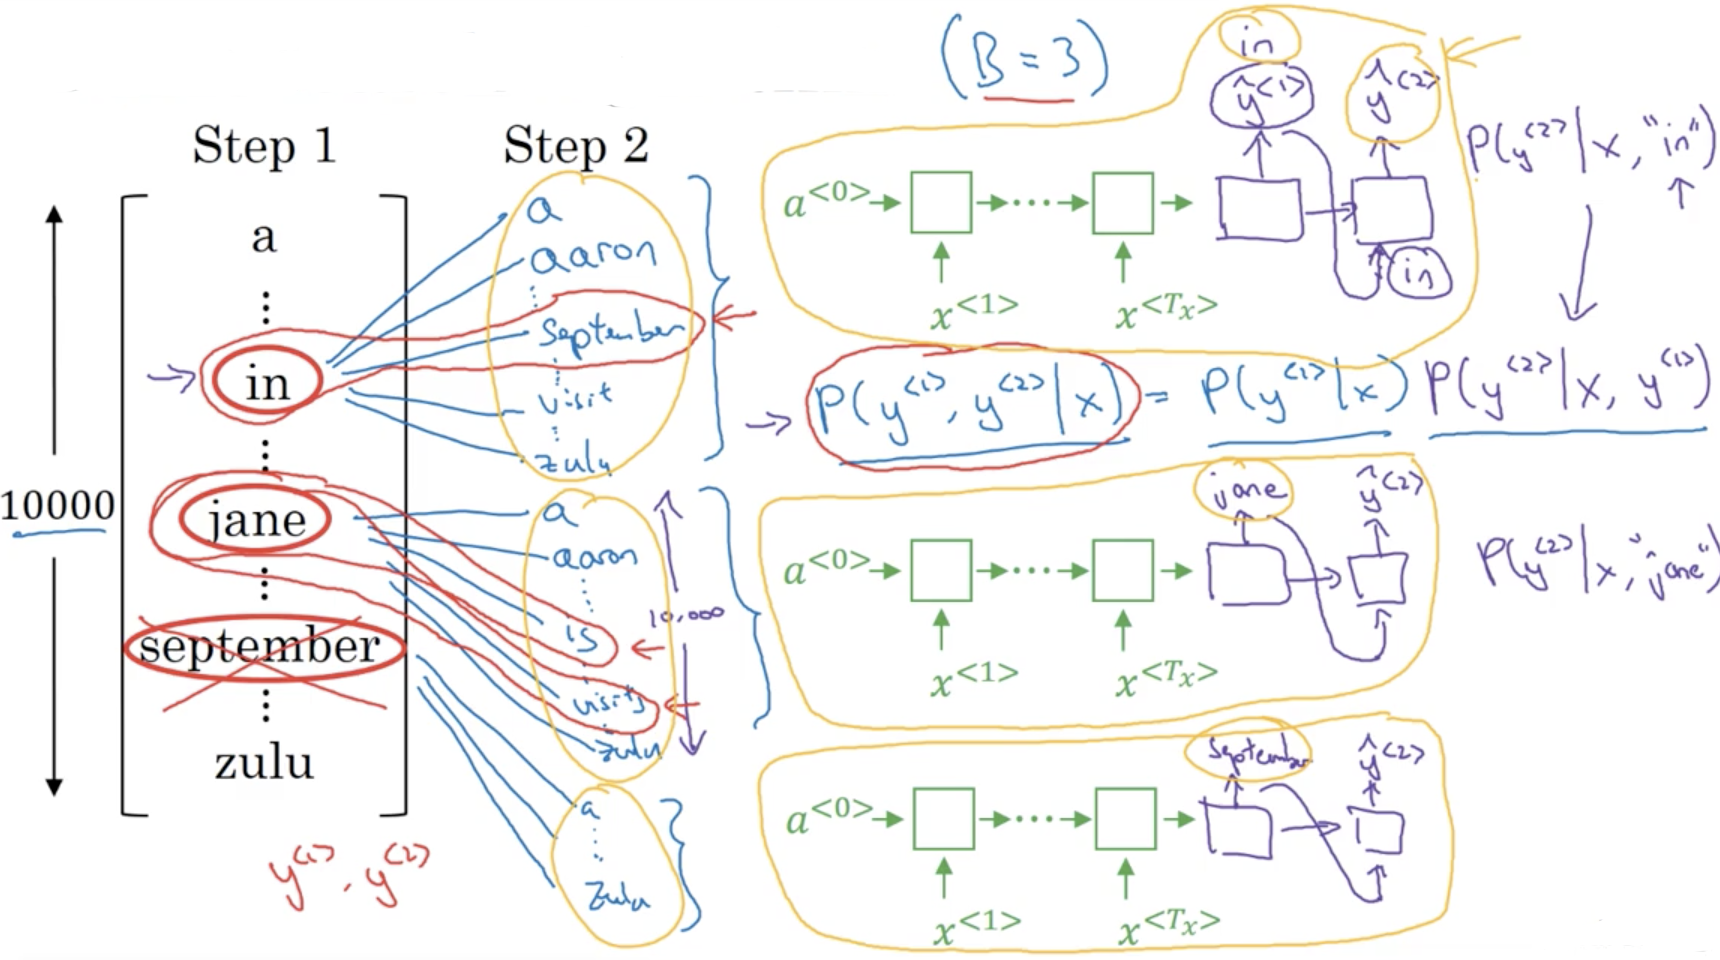 (B = 3)
Step 1
Step 2
10000
a
⋮
in
⋮
jane
⋮
september
⋮
zulu
y<1>, y<2>
a
aaron
⋮
September
⋮
visit
⋮
zulu
a
aaron
⋮
is
⋮
visits
zulu
10,000
a
⋮
zulu
in
ŷ<1>
ŷ<2>
a<0>
⋯
in
x<1>
x<Tx>
P(y<2>|x, "in")
P(y<1>, y<2>|x) = P(y<1>|x) P(y<2>|x, y<1>)
jane
ŷ<2>
a<0>
⋯
x<1>
x<Tx>
P(y<2>|x, "jane")
September
ŷ<2>
a<0>
⋯
x<1>
x<Tx>